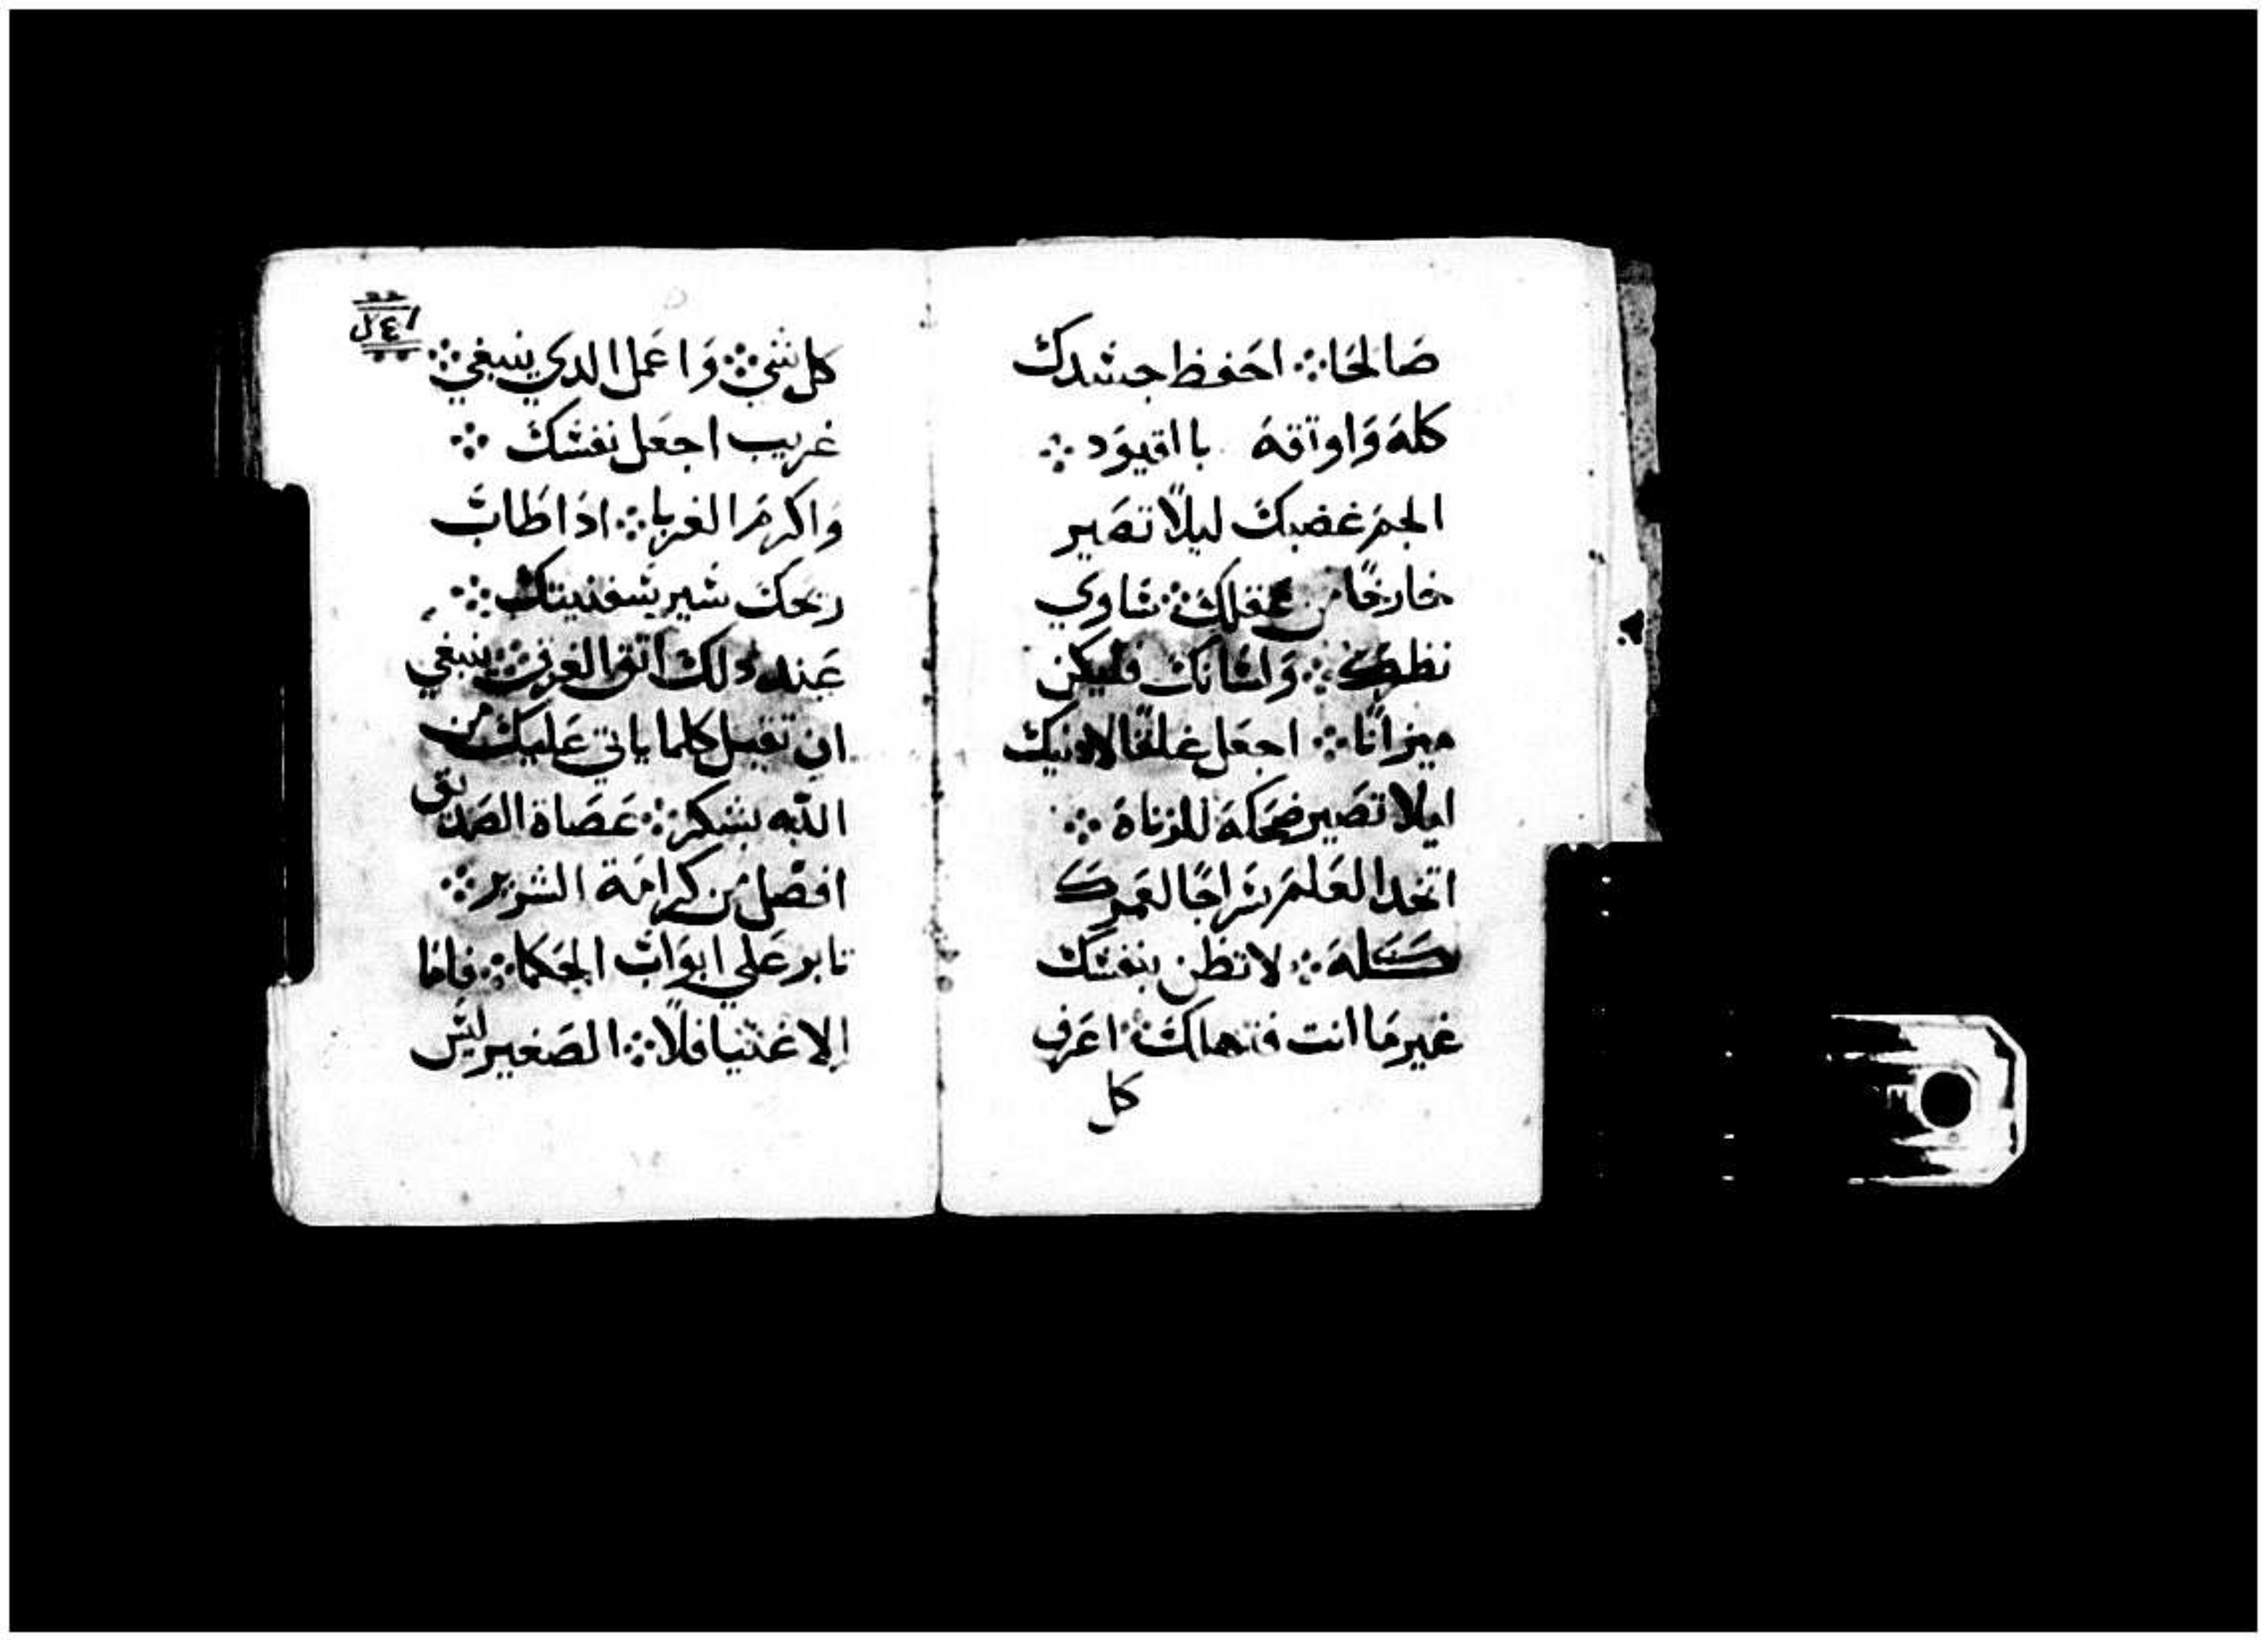 صَالحَا ܀ احَفظ جسَدك
كلهَ وَاوتقهَ بااقيوَد ܀
الجمَ غضبك ليلاً تصَير
خارجًا من عَقلك ܀ سَاوي
نظرَك ܀ وَلسَانك فليكن
ميزانًا ܀ اجعَل غلقًا لادنيك
ليلا تصَير ضحَكهَ للزناهَ ܀
اتخدا لعَلمَ سَراجًا لعَمرك
كلهَ ܀ لا تظن بنفسَك
غيرمَا انت فتهلك ܀ اعَرف
كل
كل شي ܀ وَاعمَل الدي ينبغي ܀
غريب اجعَل نفسَك ܀
وَاكرمَ الغربا ܀ ادَا طَابتَ
ريحَك سَير سَفينتك ܀
عَند دلك اتقي الغرق ܀ ينبغي
ان تقبل كلما ياتي عَليك من
الله بشكر ܀ عَصَاة الصَديق
افضَل من كرامَة الشرير ܀
تابر عَلي ابوَاب الحَكما ܀ فامَا
الاغنيا فلا ܀ الصَغير ليسَ